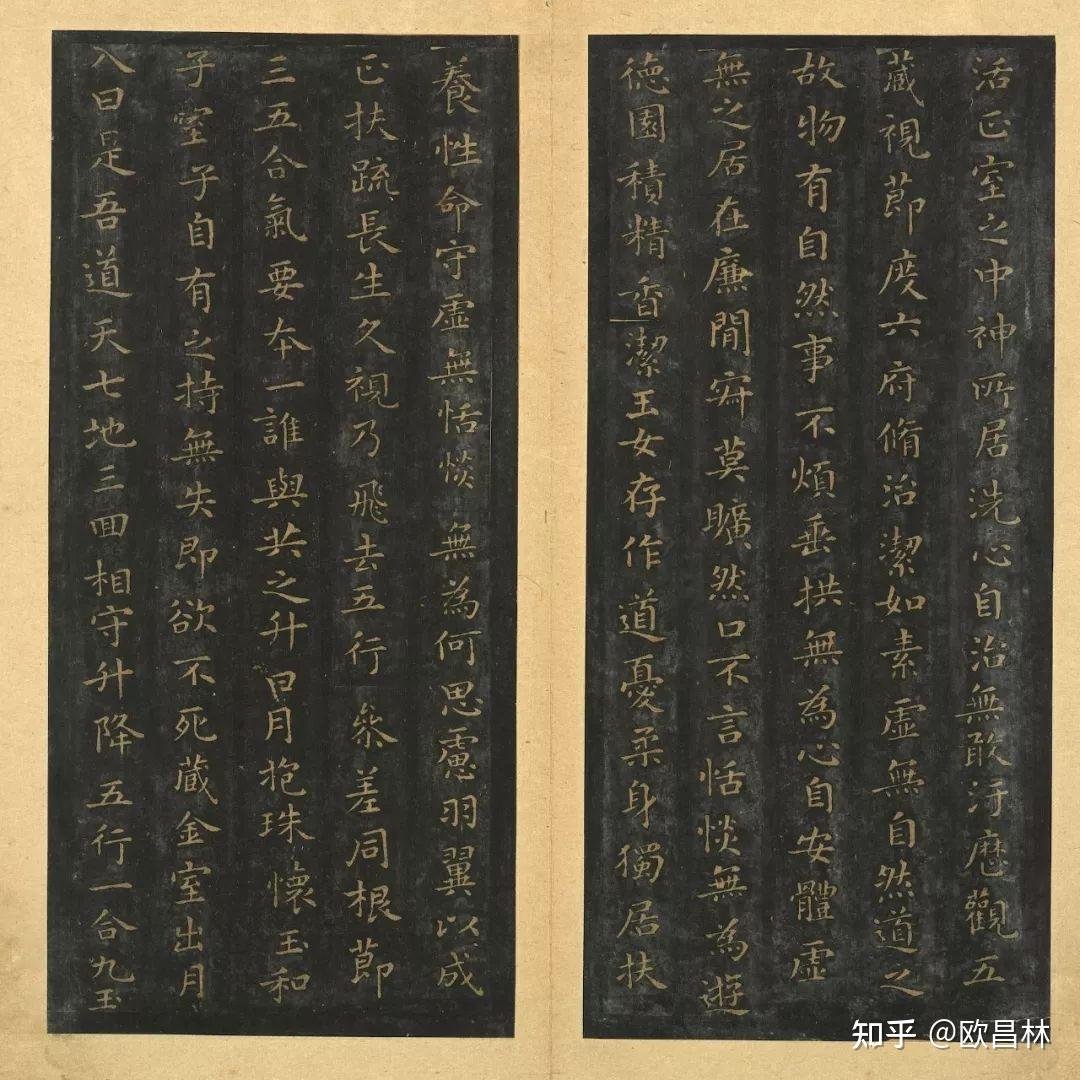 活正室之中神所居洗心自治無敢汙歷觀五
藏視節度六府脩治潔如素虛無自然道之
故物有自然事不煩垂拱無為心自安體虛
無之居在廉間寂莫曠然口不言恬惔無為遊
德園積精香潔玉女存作道憂柔身獨居扶
養性命守虛無恬惔無為何思慮羽翼以成
正扶疏長生久視乃飛去五行參差同根節
三五合氣要本一誰與共之升日月抱珠懷玉和
子室子自有之持無失即欲不死藏金室出月
入日是吾道天七地三回相守升降五行一合九玉
知乎 @欧昌林